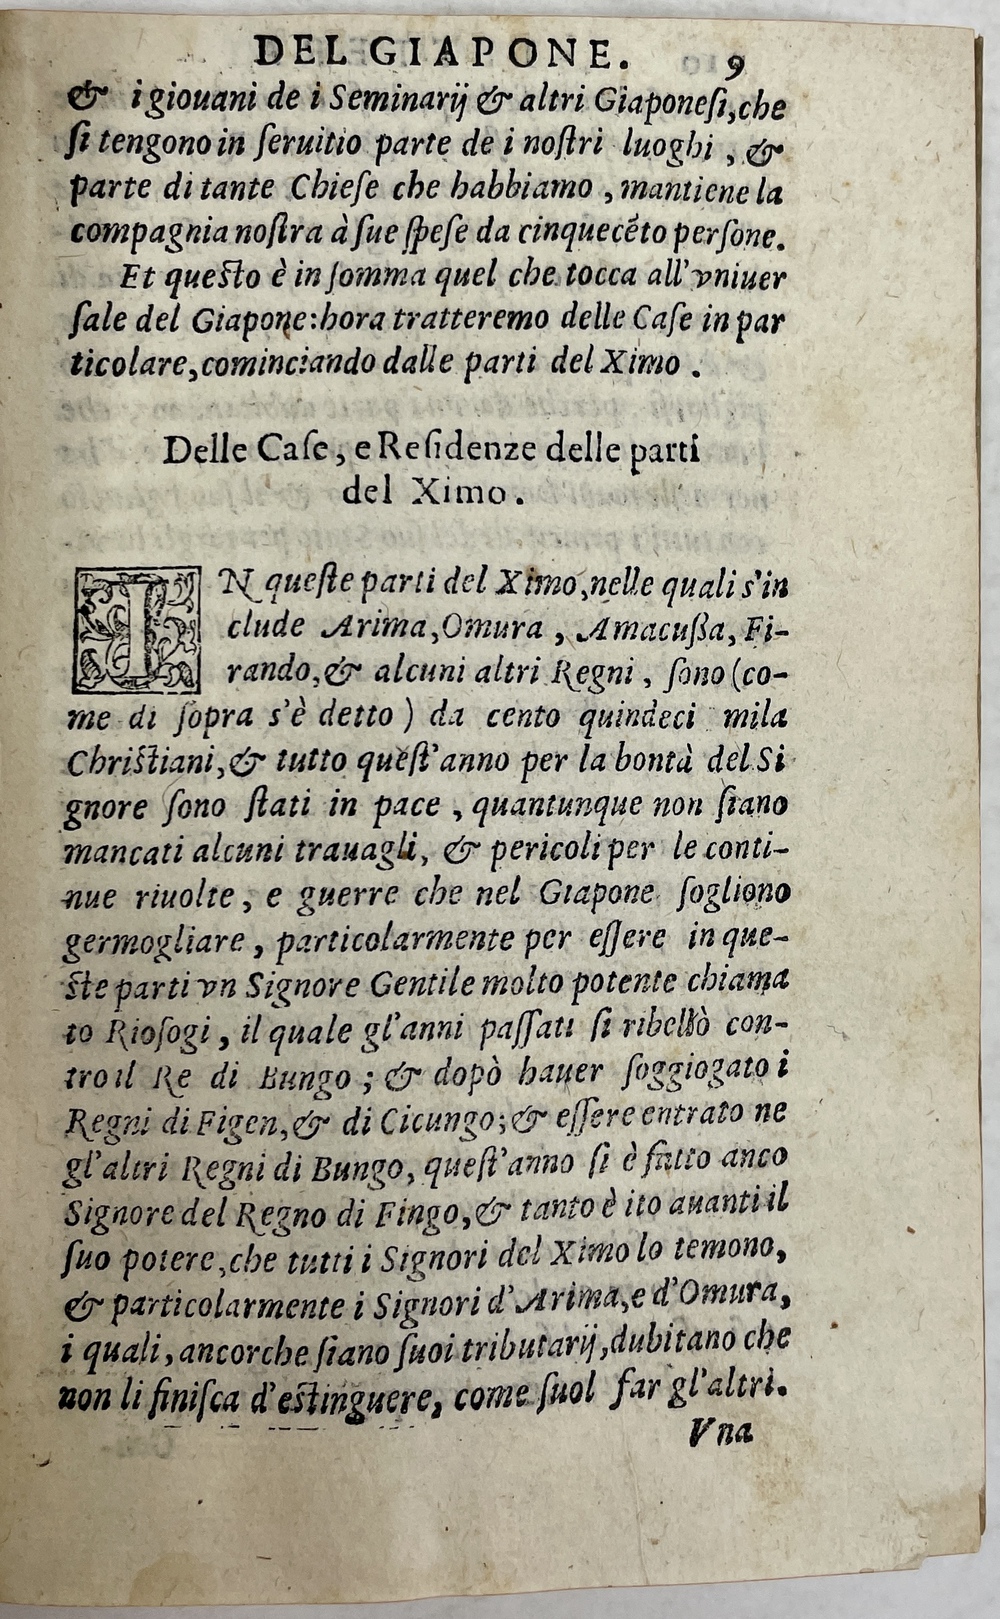 DEL GIAPONE. 9
& i giouani de i Seminarij & altri Giaponeſi, che
ſi tengono in ſeruitio parte de i noſtri luoghi, &
parte di tante Chieſe che habbiamo, mantiene la
compagnia noſtra à ſue ſpeſe da cinquecẽto perſone.
Et queſto è in ſomma quel che tocca all'vniuer
ſale del Giapone: hora tratteremo delle Caſe in par
ticolare, cominciando dalle parti del Ximo.
Delle Caſe, e Reſidenze delle parti
del Ximo.
IN queſte parti del Ximo, nelle quali s'in
clude Arima, Omura, Amacuſsa, Fi-
rando, & alcuni altri Regni, ſono (co-
me di ſopra s'è detto) da cento quindeci mila
Chriſtiani, & tutto queſt'anno per la bontà del Si
gnore ſono ſtati in pace, quantunque non ſiano
mancati alcuni trauagli, & pericoli per le conti-
nue riuolte, e guerre che nel Giapone ſogliono
germogliare, particolarmente per eſſere in que-
ſte parti vn Signore Gentile molto potente chiama
to Rioſogi, il quale gl'anni paſſati ſi ribellò con-
tro il Re di Bungo; & dopò hauer ſoggiogato i
Regni di Figen, & di Cicungo; & eſſere entrato ne
gl'altri Regni di Bungo, queſt'anno ſi è fatto anco
Signore del Regno di Fingo, & tanto è ito auanti il
ſuo potere, che tutti i Signori del Ximo lo temono,
& particolarmente i Signori d'Arima, e d'Omura,
i quali, ancorche ſiano ſuoi tributarij, dubitano che
non li finiſca d'eſtinguere, come ſuol far gl'altri.
Vna